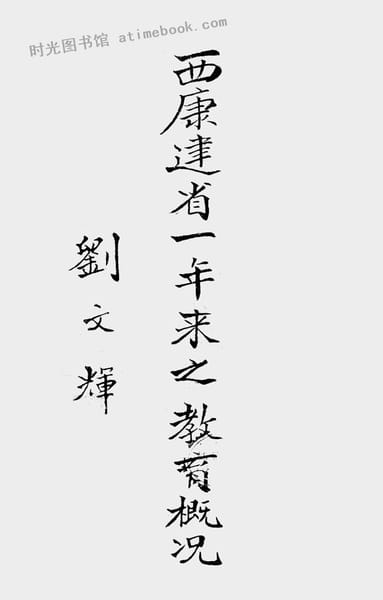 时光图书馆 atimebook.com
西康建省一年来之教育概况
劉文輝